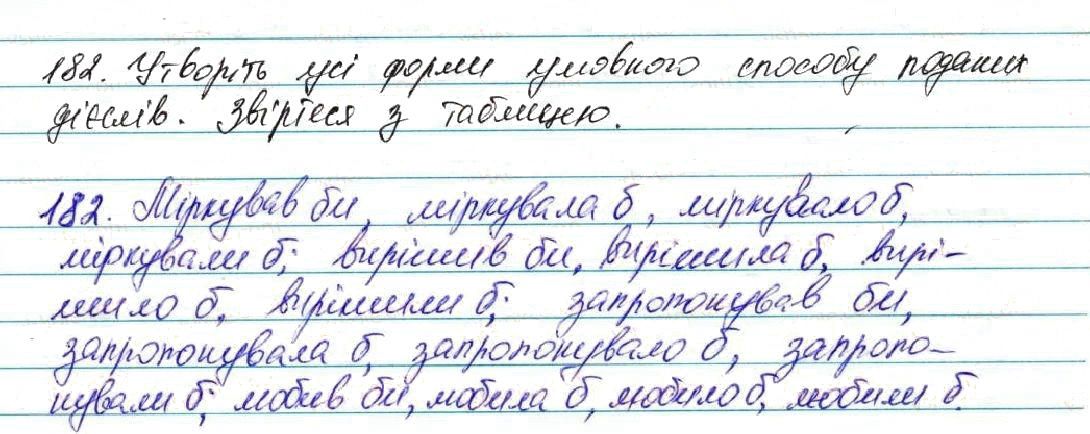 182. Утворіть усі форми умовного способу поданих
дієслів. Звіртеся з таблицею.
182. Міркував би, міркувала б, міркувало б,
міркували б; вирішив би, вирішила б, вирі-
шило б, вирішили б; запропонував би,
запропонувала б, запропонувало б, запропо-
нували б; любив би, любила б, любило б, любили б.